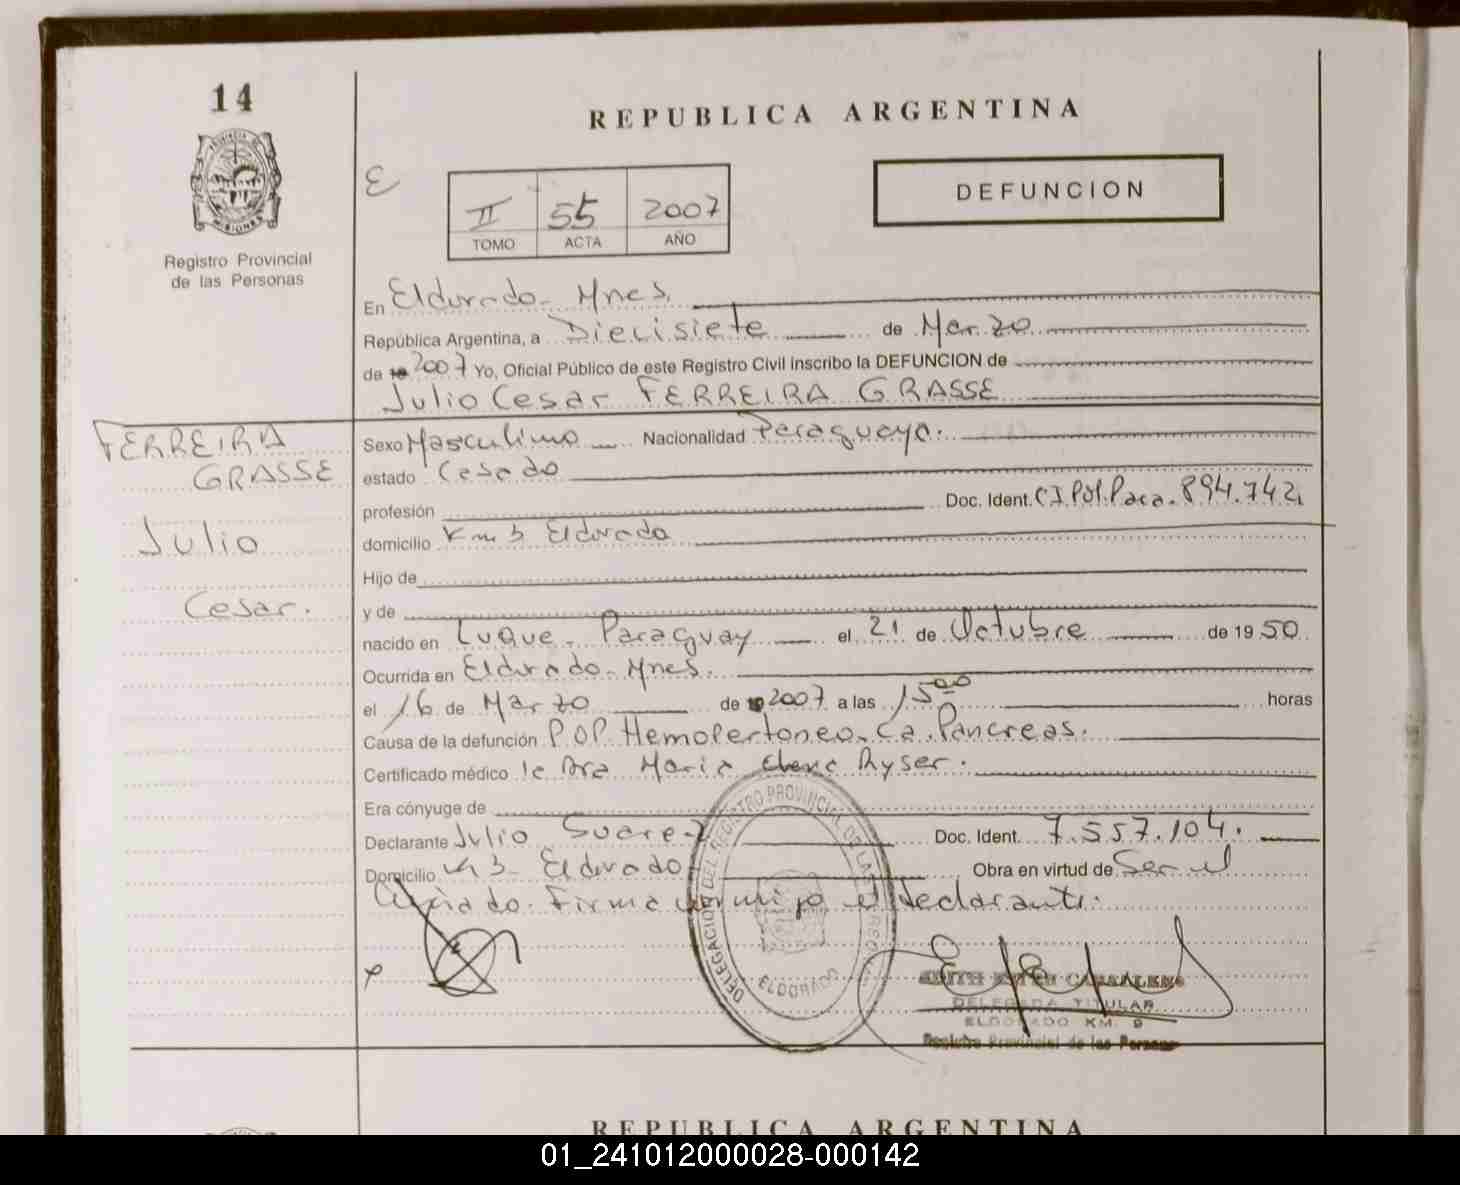 14
REPUBLICA ARGENTINA
DEFUNCION
II 55 2007
TOMO ACTA AÑO
Registro Provincial
de las Personas
En Eldorado - Mnes.
República Argentina, a Diecisiete de Marzo
de 2007 Yo, Oficial Público de este Registro Civil inscribo la DEFUNCION de
Julio Cesar FERREIRA GRASSE
FERREIRA
GRASSE
Julio
Cesar.
Sexo Masculino Nacionalidad Paraguaya.
estado Casado
profesión Doc. Ident. CI.Pol.Para. 894.742
domicilio Km 3 Eldorado
Hijo de
y de
nacido en Luque - Paraguay el 21 de Octubre de 1950
Ocurrida en Eldorado - Mnes.
el 16 de Marzo de 2007 a las 15 00 horas
Causa de la defunción P.O.P. Hemopertoneo - Ca. Pancreas.
Certificado médico la Dra Maria Elena Ryser.
Era cónyuge de
Declarante Julio Suarez Doc. Ident. 7.557.104.
Domicilio K 3 - Eldorado Obra en virtud de Ser el
Firma conmigo el declarante.
DELEGACION DEL REGISTRO PROVINCIAL DE LAS PERSONAS
ELDORADO
DELEGADA TITULAR
ELDORADO KM. 9
Registro Provincial de las Personas
REPUBLICA ARGENTINA
01_241012000028-000142